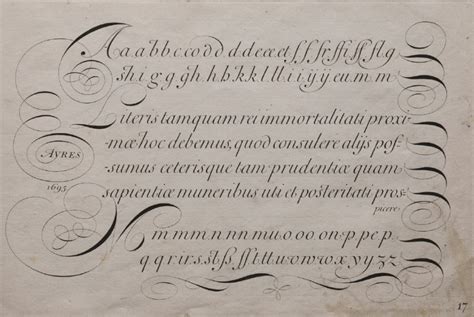 Aa.a.b.b.c.c.o.d.d.d.d.e.e.et.ſſ.ſ.ſr.ſſi.ſſ.ſl.g
h.i.g.g.h.h.k.k.l.l.i.i.ÿ.ÿ.e.u.m.m
Literis tamquam rei immortalitati proxi-
mæ hoc debemus, quod consulere alijs poſ-
sumus ceterisque tam prudentiæ quam
sapientiæ muneribus uti et posteritati pros-
picere.
AYRES
1695
N m.m.m.n.n.n.m.u.o.o.o.o.n.p.p.e.p
q.q.r.i.r.s.u.o.w.o.w.x.y.y.z.z
17